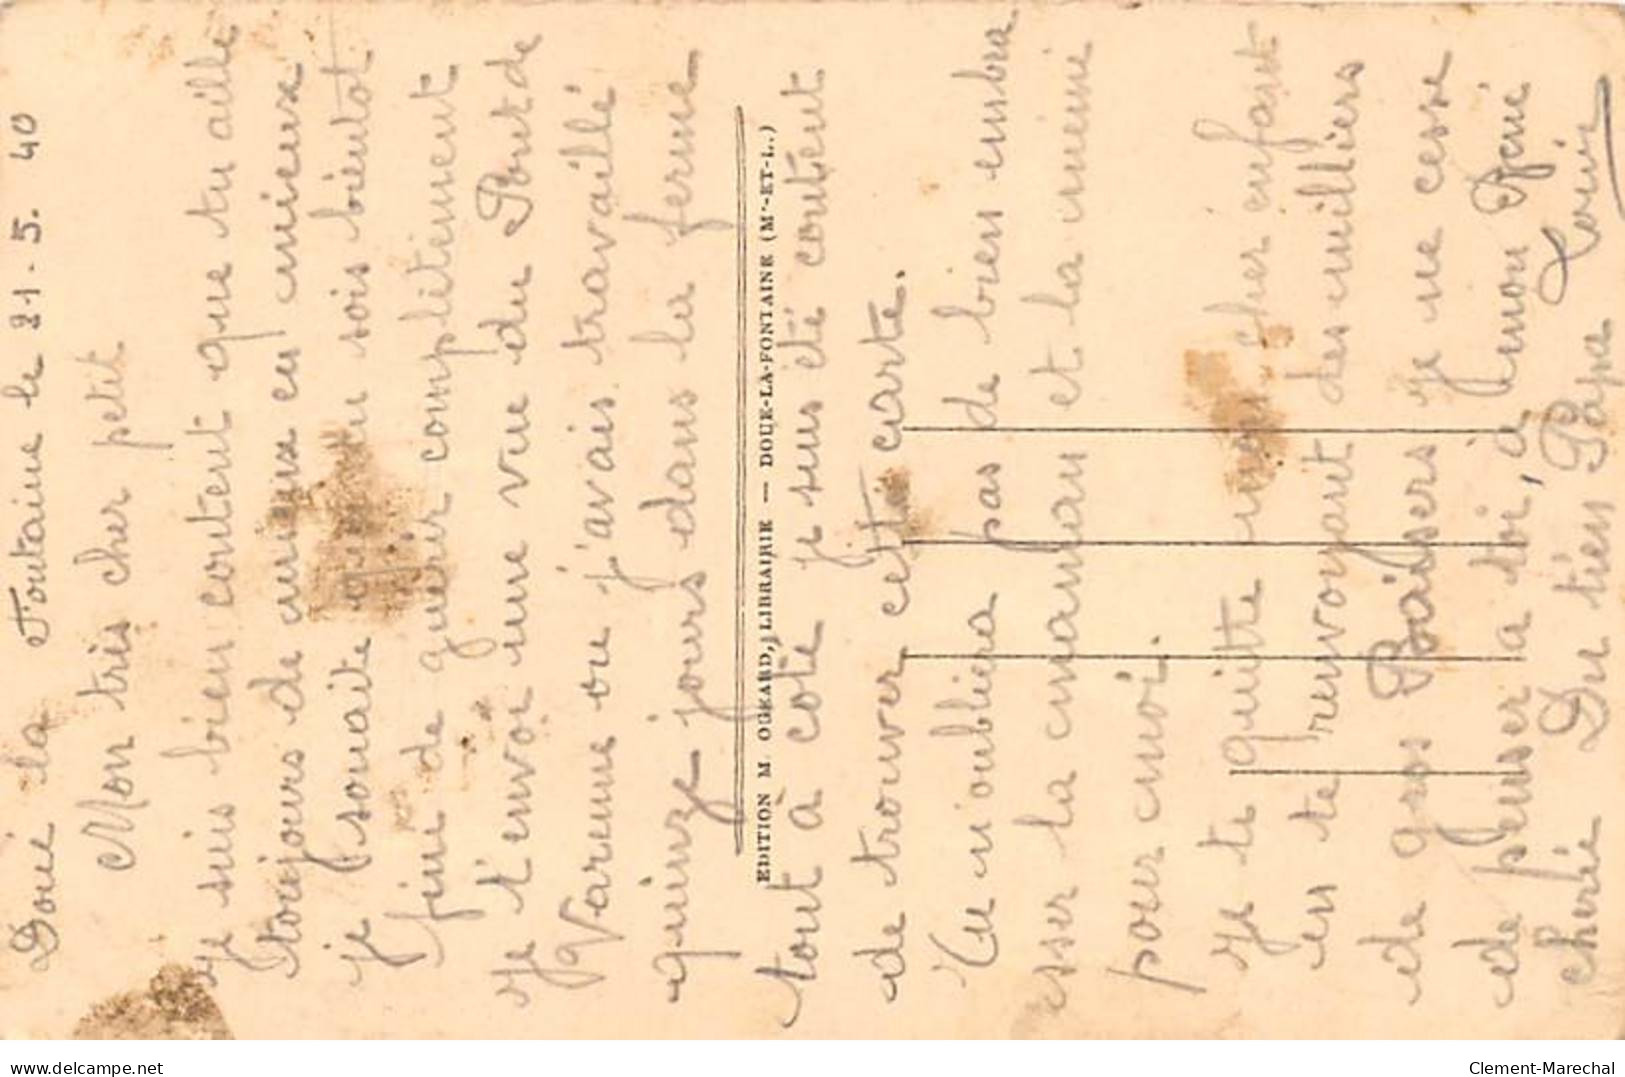 Doué la Fontaine le 21.5.40
Mon très cher petit
je suis bien content que tu aille
toujours de mieux en mieux
je souaite que tu sois bientot
fini de guerir complitement
je t'envoi une vue du Pont de
Varenne ou j'avais travaillé
quinze jours dans la ferme
tout à coté je suis été content
de trouver cette carte.
Tu n'oubliera pas de bien embra
esser la maman et la mémé
pour moi.
je te quitte mon cher enfant
en te renvoyant des milliers
de gros Baisers je ne cesse
de penser a toi, a mon René
cherié Du tien Papa Louis
EDITION M. OGEARD, LIBRAIRIE — DOUE-LA-FONTAINE (M'-ET-L.)
www.delcampe.net
Clement-Marechal